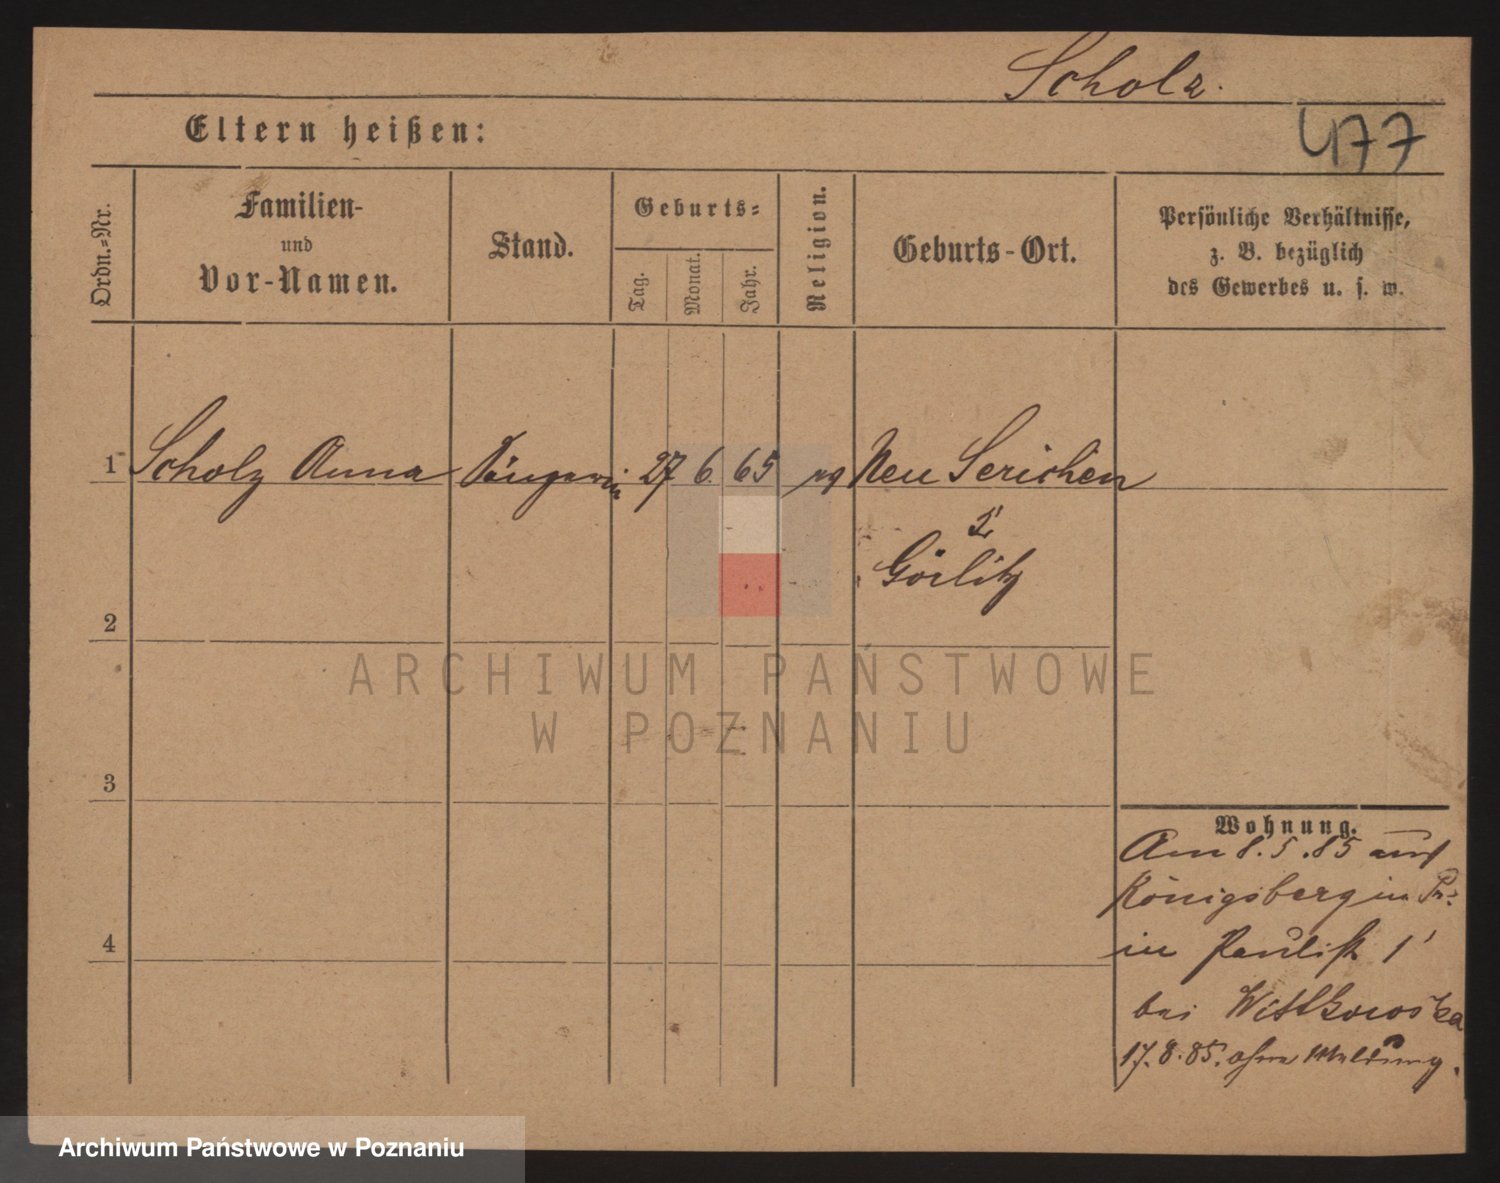 Scholz.
477
Eltern heißen:
Ordn.-Nr.
Familien-
und
Vor-Namen.
Stand.
Geburts-
Tag.
Monat.
Jahr.
Religion.
Geburts-Ort.
Persönliche Verhältnisse,
z. B. bezüglich
des Gewerbes u. s. w.
1 Scholz Anna Sängerin 27 6. 65 Neu Serichen
Görlitz
2
ARCHIWUM PAŃSTWOWE
W POZNANIU
3
Wohnung.
Am 8.5.85 aus
Königsberg in Pr.
in Paulist 1
4
bei Wittkowska
17.8.85. ohne Meldung.
Archiwum Państwowe w Poznaniu